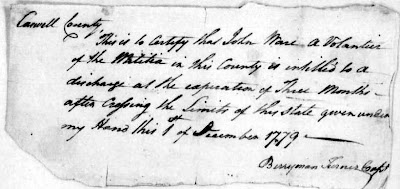 Caswell County
This is to Certify that John Ware a Volantier
of the Militia in this County is intitled to a
discharge at the expiration of Three Months
after Crossing the Limits of this State given under
my Hand this 1st of December 1779
Berryman Turner Capt